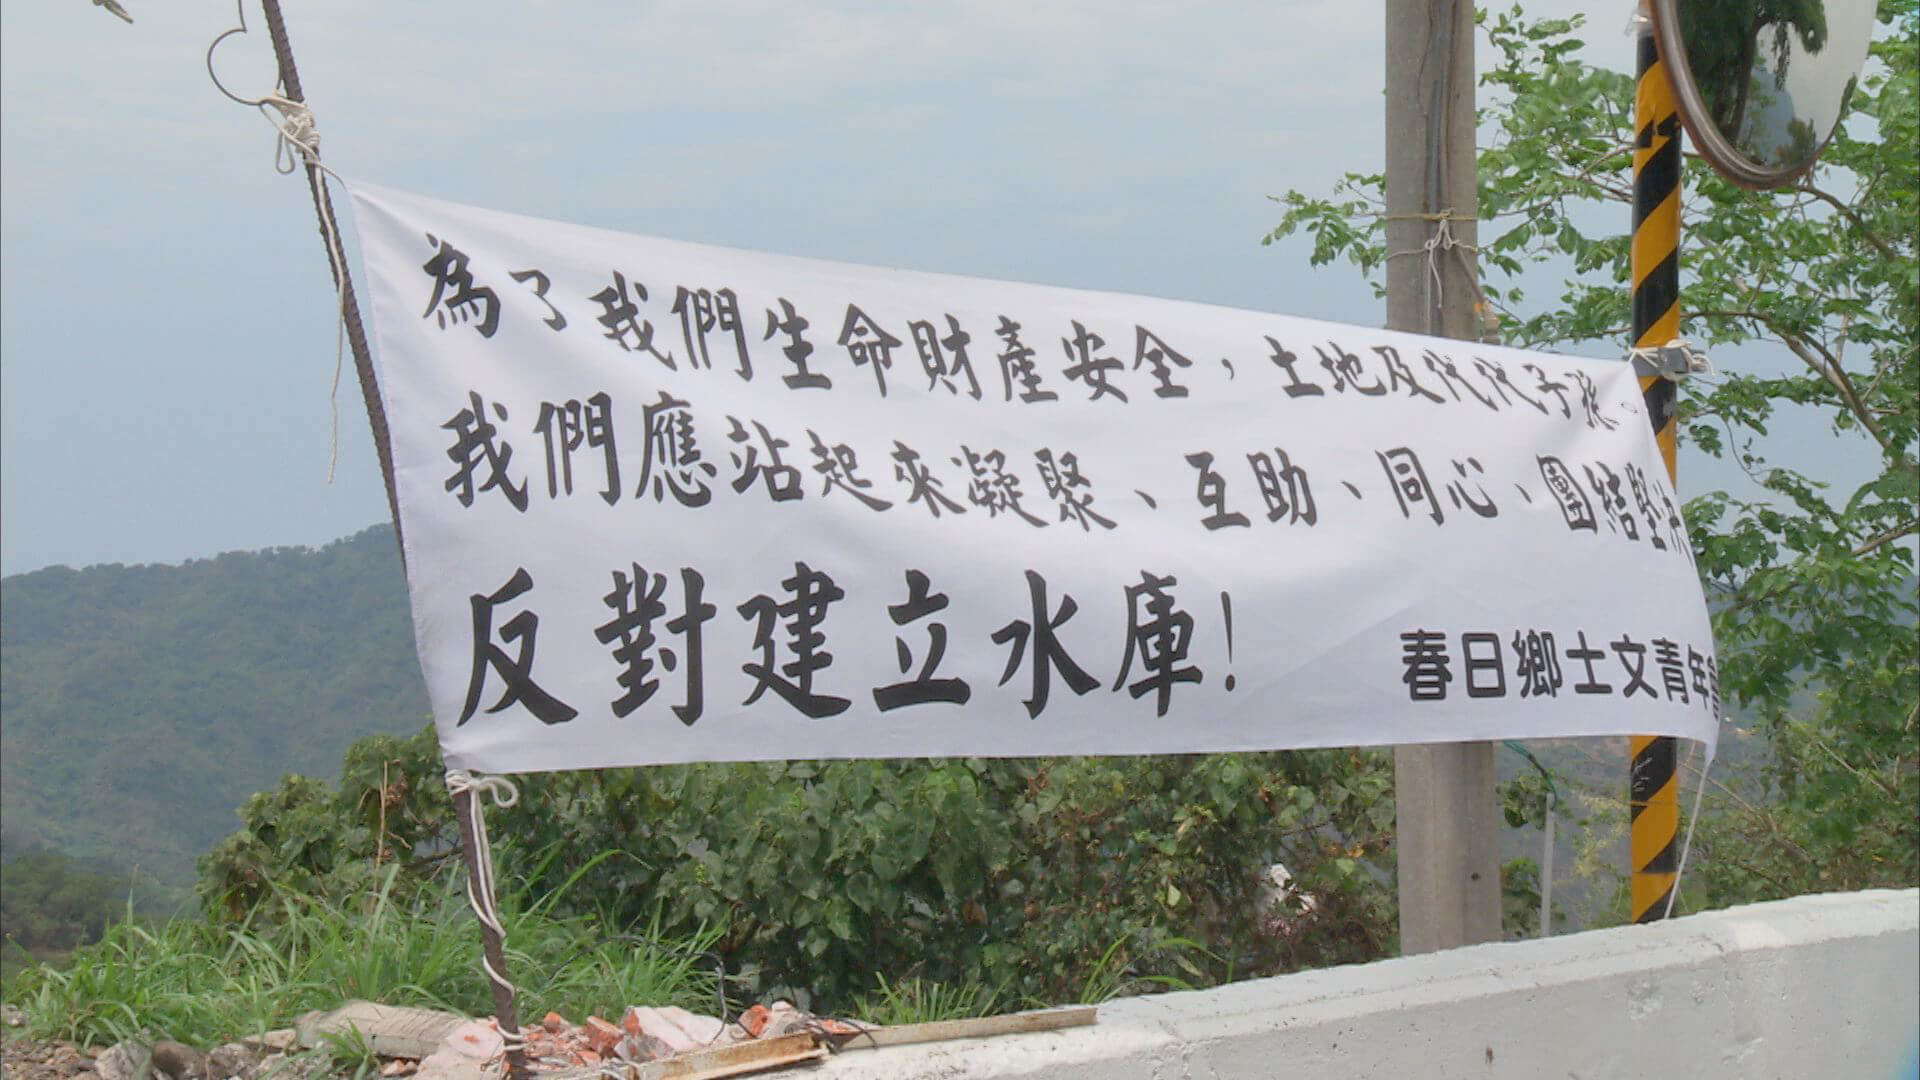 為了我們生命財產安全，土地及代代子孫。
我們應站起來凝聚、互助、同心、團結堅決
反對建立水庫！
春日鄉士文青年會